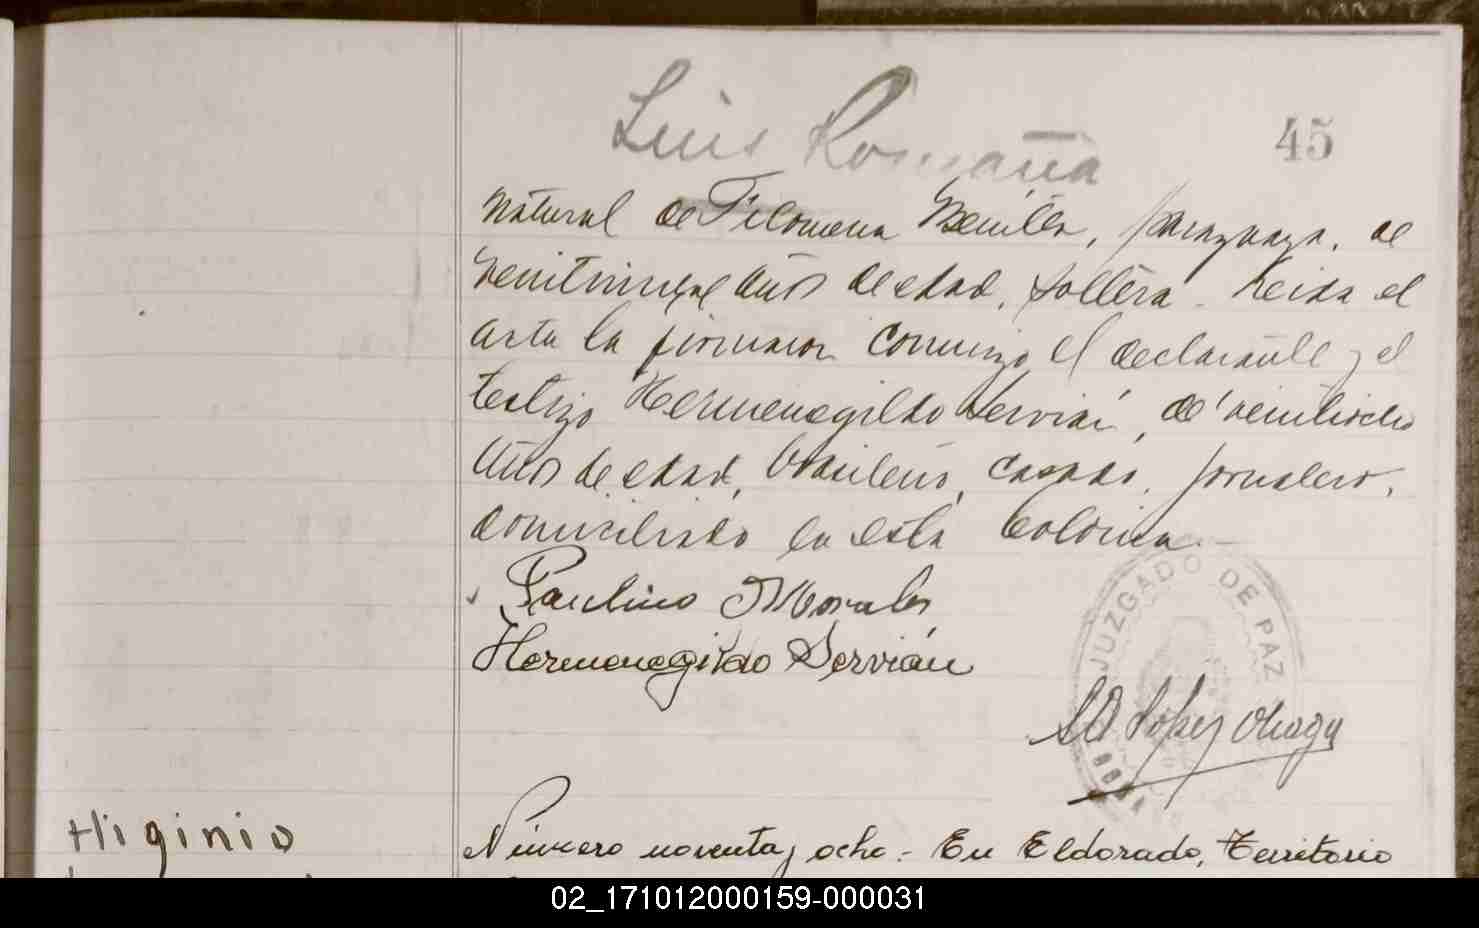 Luis Romaña
45
natural de Filomena Benítez, paraguaya, de
años de edad, soltera. Leida el
acta la firmaron conmigo el declarante y el
testigo Hermenegildo Servián, de veintiocho
años de edad, brasileño, casado, jornalero,
domiciliado en esta Colonia.-
Paulino Morales
Hermenegildo Servián
JUZGADO DE PAZ
López
Higinio
Número noventa y ocho.- En Eldorado, Territorio
02_171012000159-000031